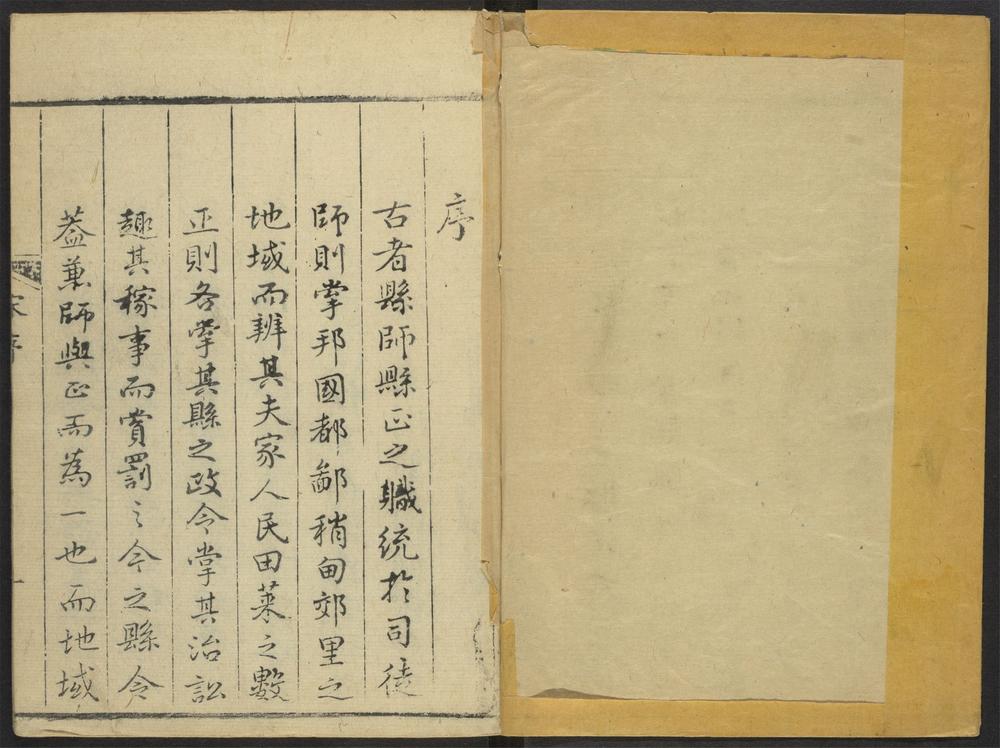 序
古者縣師縣正之職統於司徒
師則掌邦國都鄙稍甸郊里之
地域而辨其夫家人民田萊之數
正則各掌其縣之政令掌其治訟
趣其稼事而賞罰之今之縣令
蓋兼師與正而為一也而地域
宋序
一